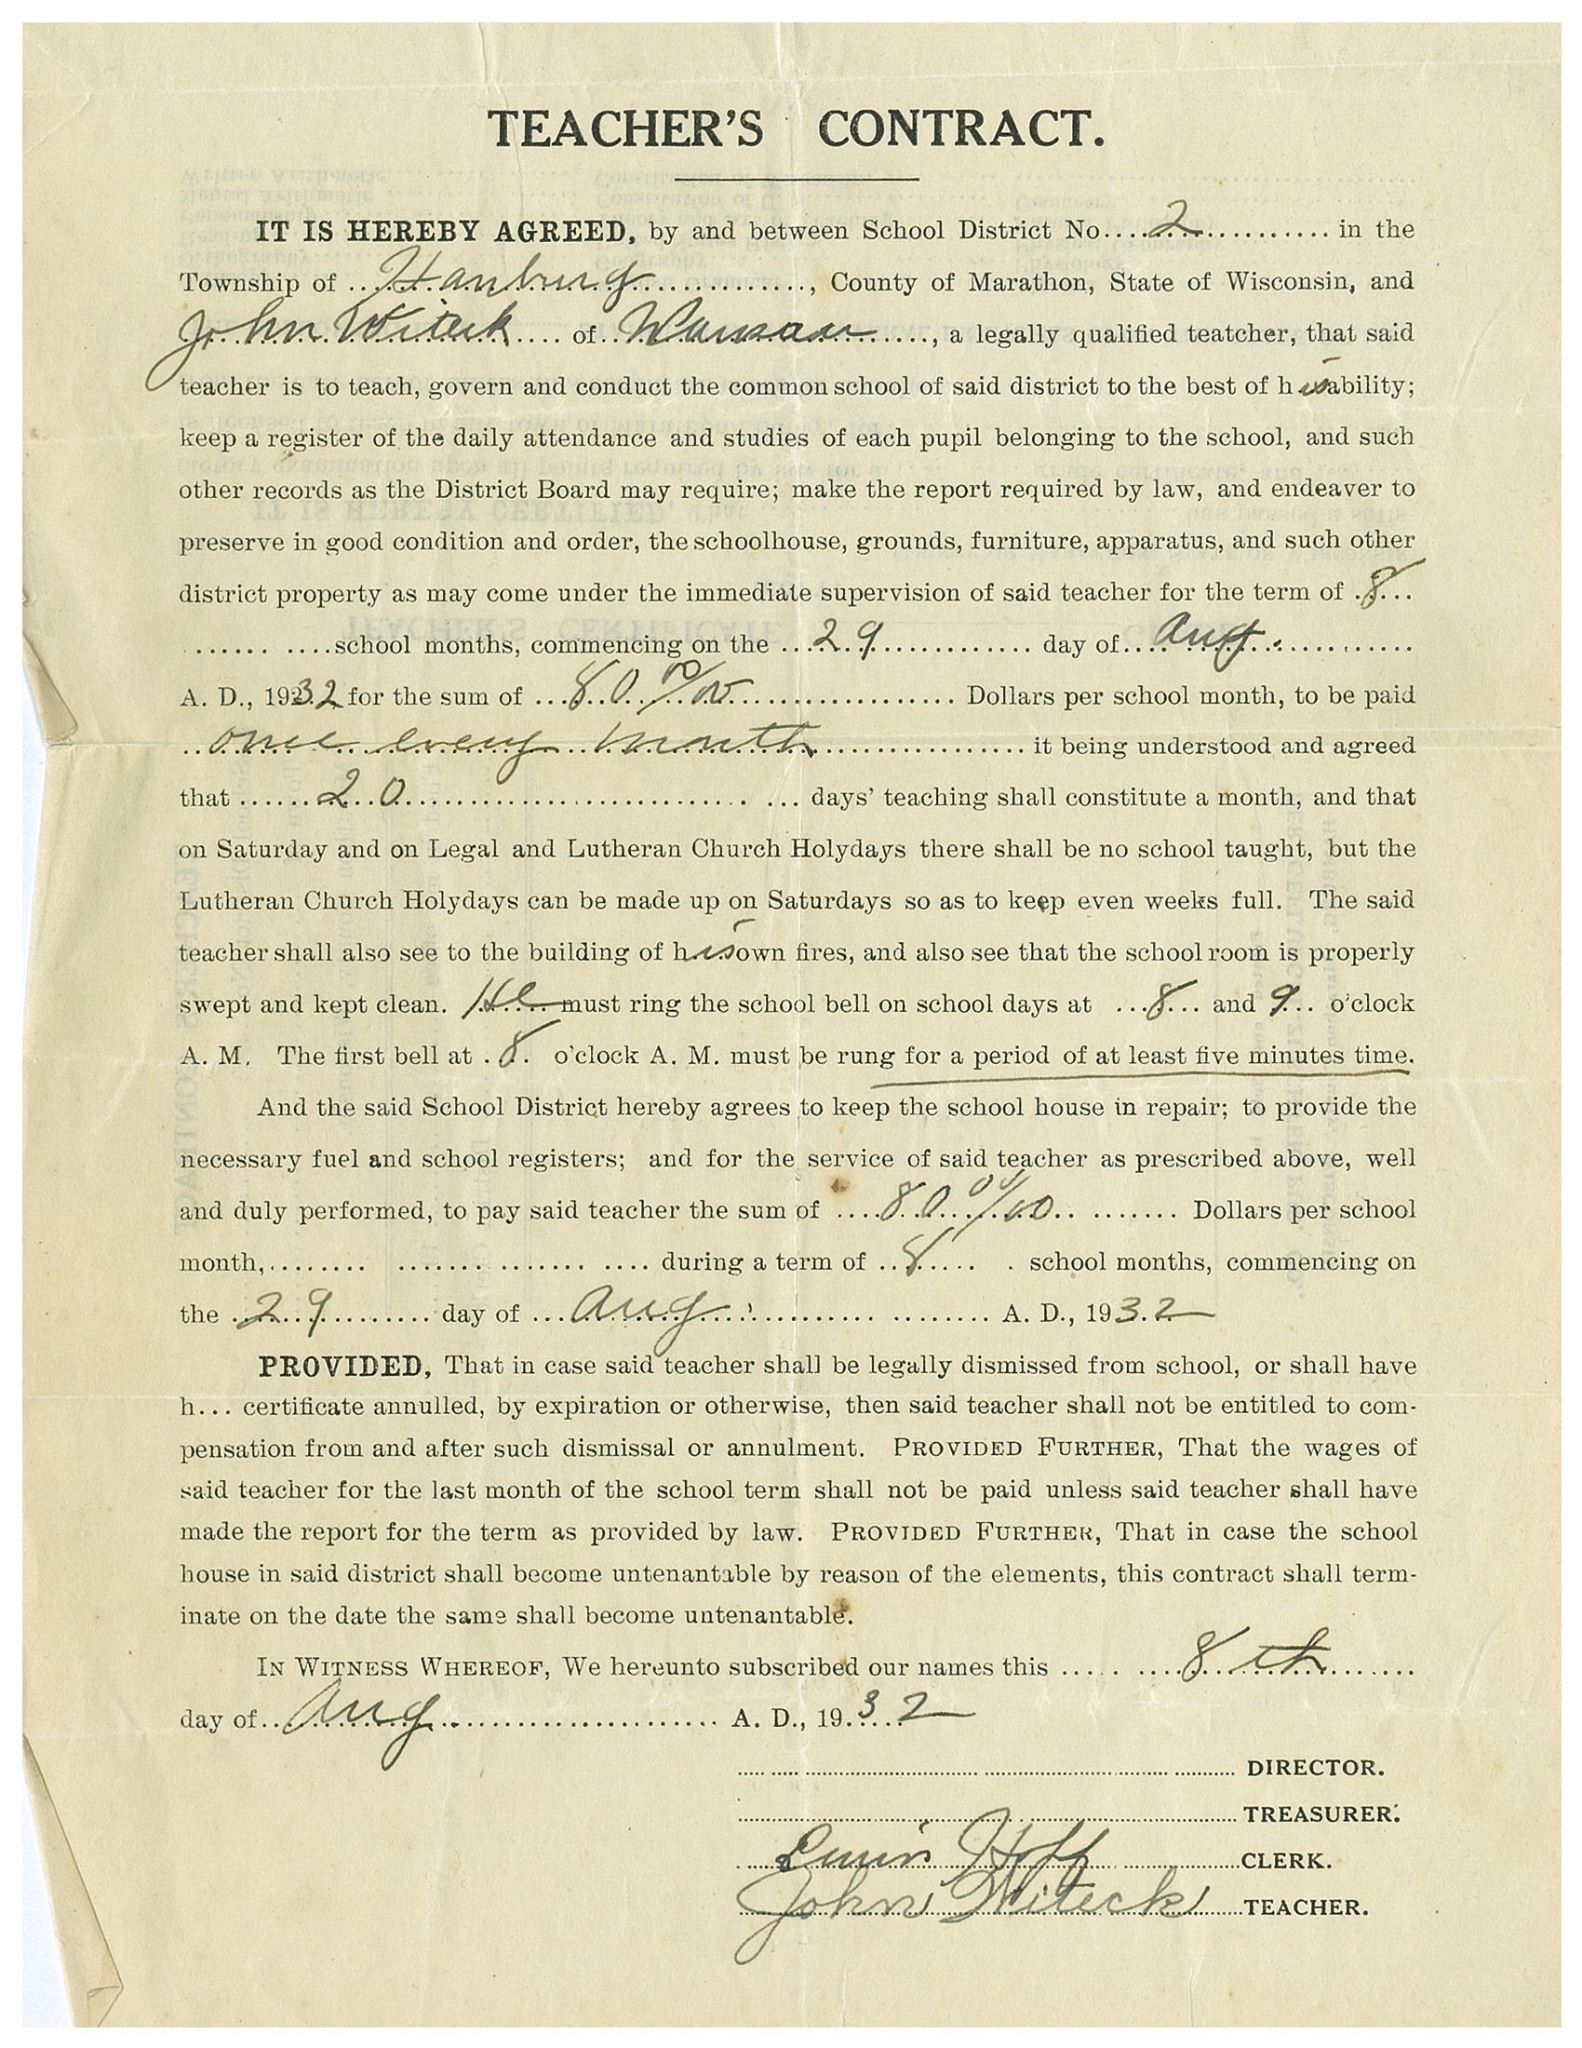 TEACHER'S CONTRACT.
IT IS HEREBY AGREED, by and between School District No....2............ in the
Township of ...Hamburg............, County of Marathon, State of Wisconsin, and
John Witeck.... of..Wausau........, a legally qualified teatcher, that said
teacher is to teach, govern and conduct the common school of said district to the best of his ability;
keep a register of the daily attendance and studies of each pupil belonging to the school, and such
other records as the District Board may require; make the report required by law, and endeaver to
preserve in good condition and order, the schoolhouse, grounds, furniture, apparatus, and such other
district property as may come under the immediate supervision of said teacher for the term of .8...
...... ....school months, commencing on the ...29............ day of....Aug.............
A. D., 1932 for the sum of ...80 00/00.................. Dollars per school month, to be paid
..once every month.................. it being understood and agreed
that ......20............................ ... days' teaching shall constitute a month, and that
on Saturday and on Legal and Lutheran Church Holydays there shall be no school taught, but the
Lutheran Church Holydays can be made up on Saturdays so as to keep even weeks full. The said
teacher shall also see to the building of his own fires, and also see that the school room is properly
swept and kept clean. He must ring the school bell on school days at ...8... and 9... o'clock
A. M. The first bell at .8. o'clock A. M. must be rung for a period of at least five minutes time.
And the said School District hereby agrees to keep the school house in repair; to provide the
necessary fuel and school registers; and for the service of said teacher as prescribed above, well
and duly performed, to pay said teacher the sum of ....80 00/100.. ....... Dollars per school
month,........ ....... ....... .... during a term of ..8.... . school months, commencing on
the ..29......... day of ...Aug............... ......... A. D., 1932
PROVIDED, That in case said teacher shall be legally dismissed from school, or shall have
h... certificate annulled, by expiration or otherwise, then said teacher shall not be entitled to com-
pensation from and after such dismissal or annulment. PROVIDED FURTHER, That the wages of
said teacher for the last month of the school term shall not be paid unless said teacher shall have
made the report for the term as provided by law. PROVIDED FURTHER, That in case the school
house in said district shall become untenantable by reason of the elements, this contract shall term-
inate on the date the same shall become untenantable.
IN WITNESS WHEREOF, We hereunto subscribed our names this ..... ....8th........
day of..Aug........................ A. D., 19.32
DIRECTOR.
TREASURER.
Hoff CLERK.
John Witeck TEACHER.